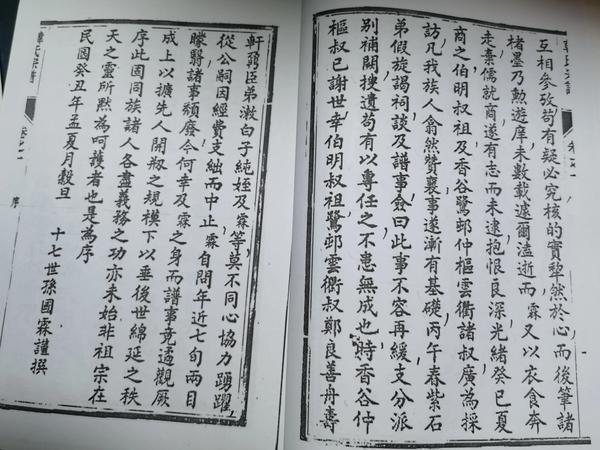 互相參攷苟有疑必究核的實犂然於心而後筆諸
楮墨乃勲遊庠未數載遽爾溘逝而霖又以衣食奔
走棄儒就商遂有志而未逮抱恨良深光緒癸巳夏
商之伯明叔祖及香谷鷺邨仲樞雲衢諸叔廣為採
訪凡我族人翕然贊襄事遂漸有基礎丙午春紫石
弟假旋謁祠談及譜事僉曰此事不容再緩支分派
別補闕搜遺苟有以專任之不患無成也時香谷仲
樞叔已謝世幸伯明叔祖鷺邨雲衢叔鄭良善舟壽
軒弼臣弟漱白子純姪及霖等莫不同心協力踴躍
從公嗣因經費支絀而中止霖自問年近七旬兩目
矇翳諸事頹廢今何幸及霖之身而譜事竟遹觀厥
成上以擴先人開剏之規模下以垂後世綿延之秩
序此固同族諸人各盡義務之功亦未始非祖宗在
天之靈所默為呵護者也是為序
民國癸丑年孟夏月穀旦
十七世孫國霖謹撰
序